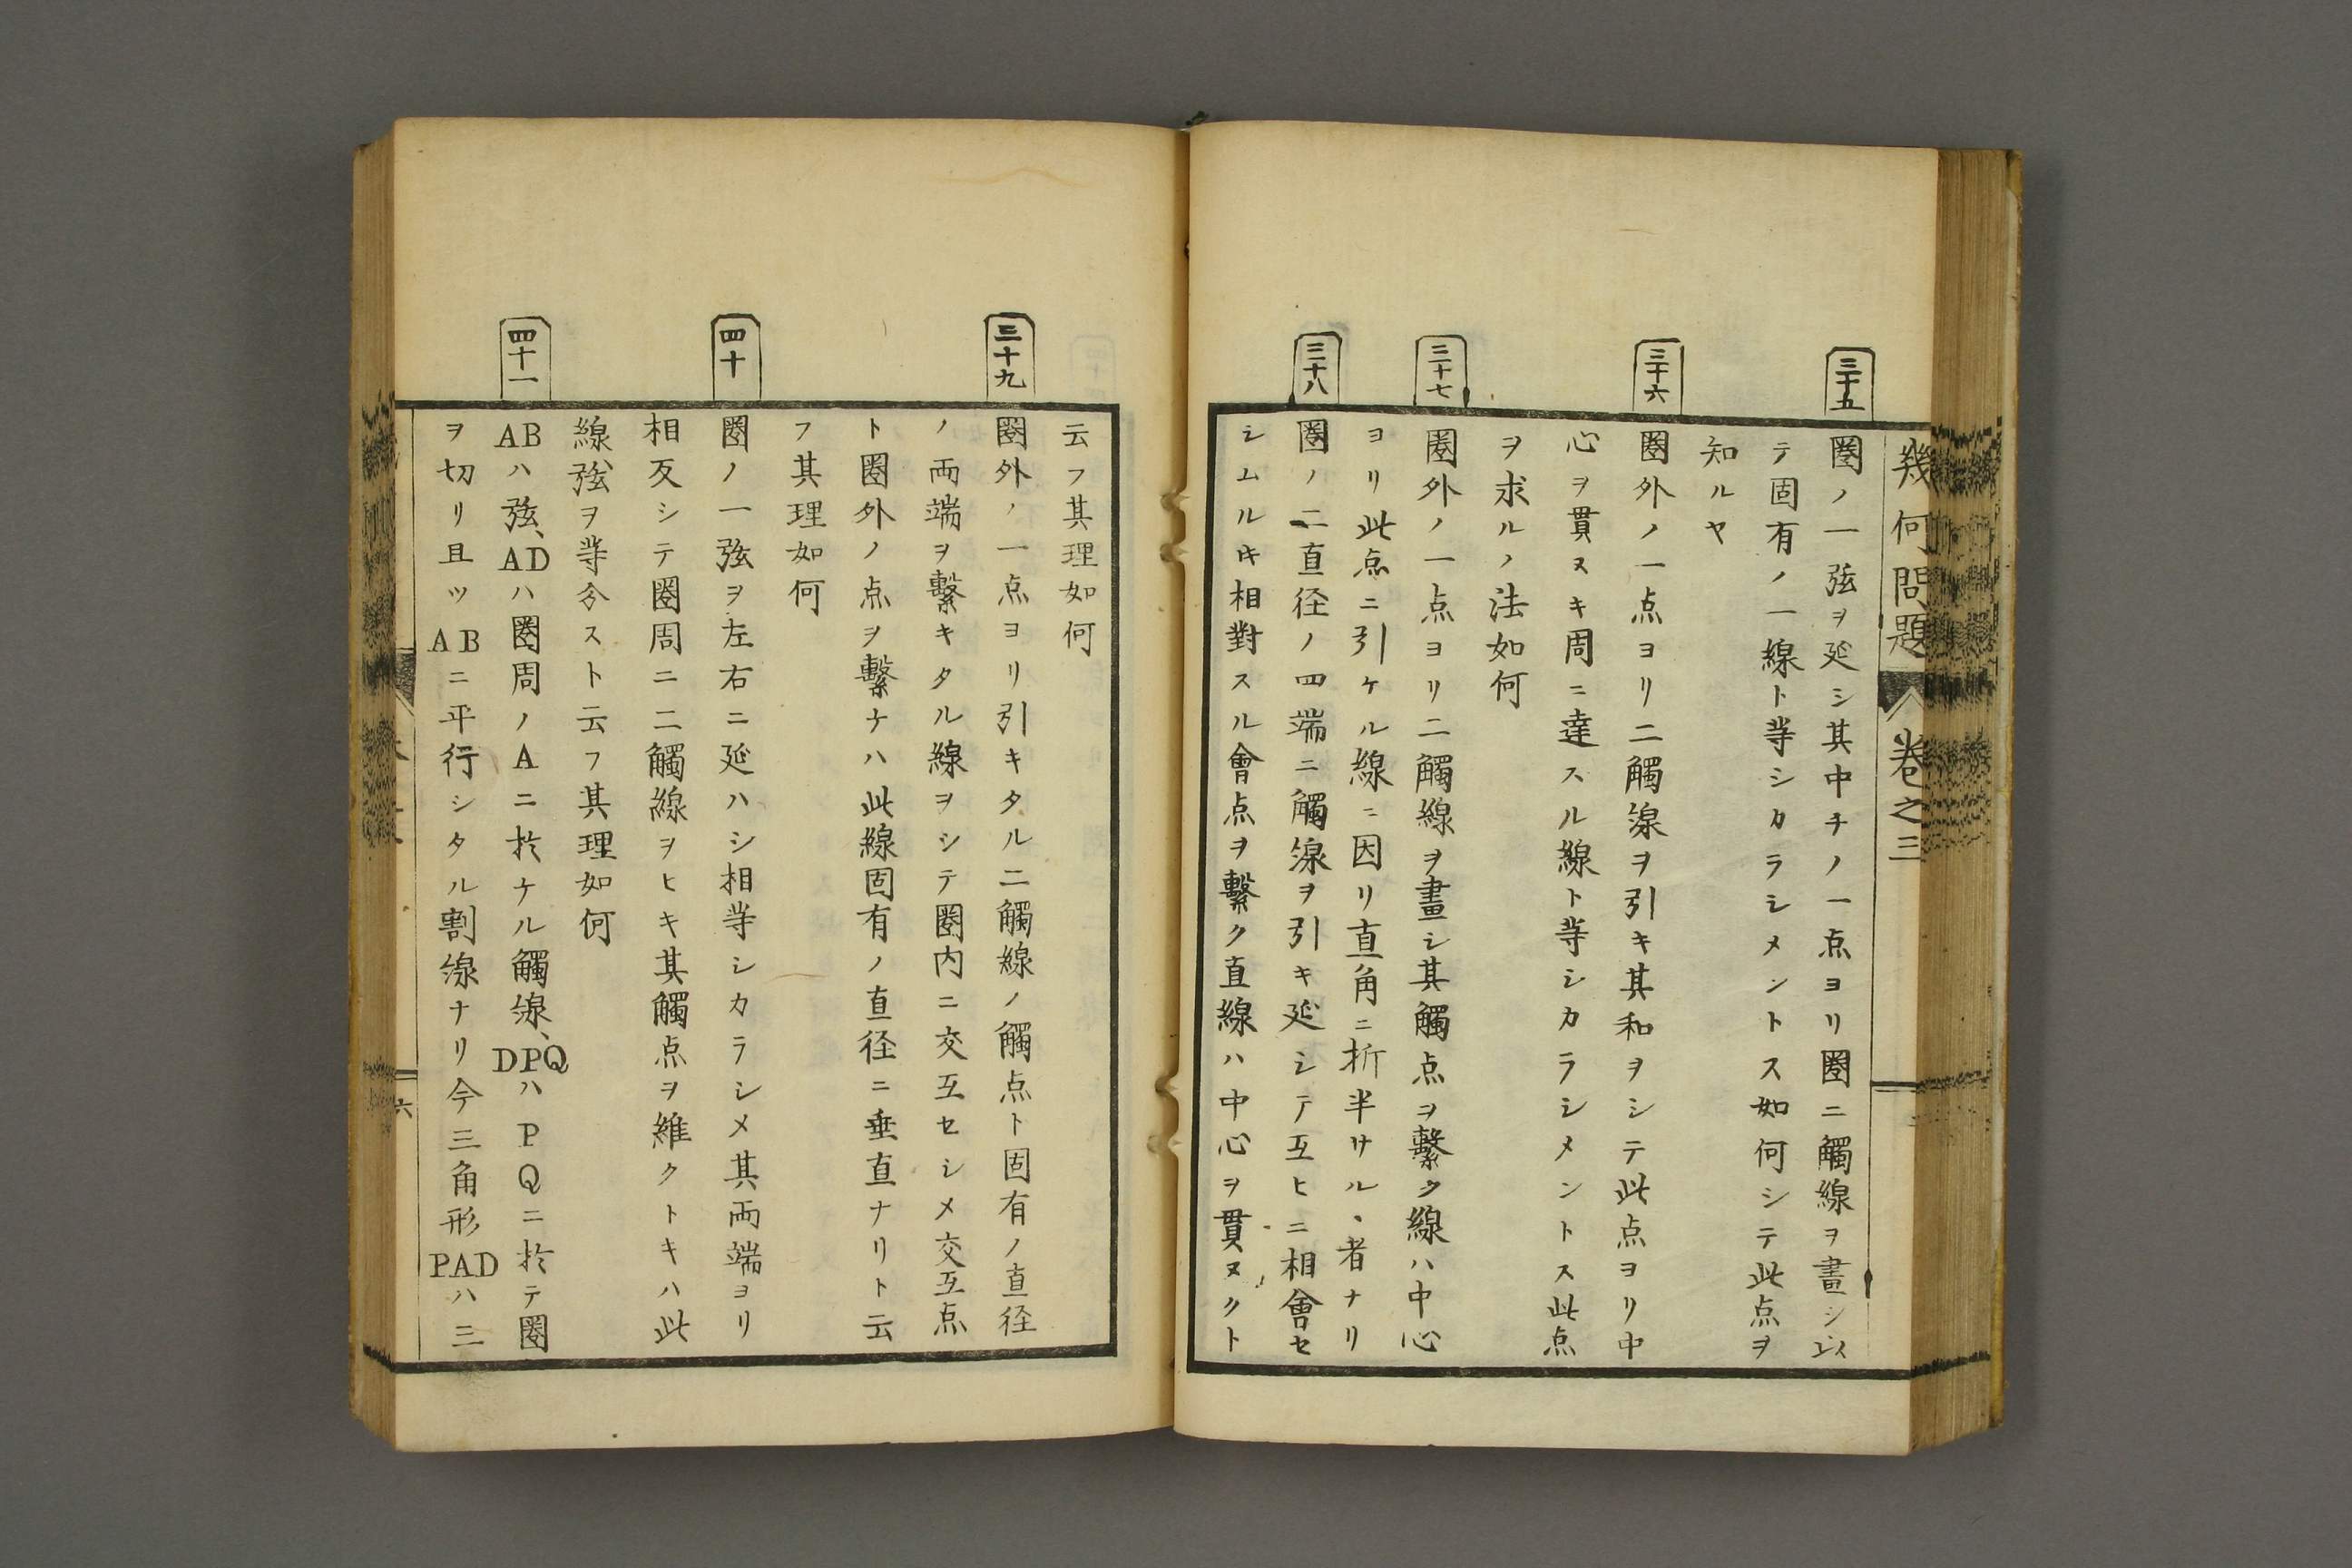 幾何問題
卷之三
三十五
圏ノ一弦ヲ延シ其中チノ一点ヨリ圏ニ觸線ヲ畫シ以
テ固有ノ一線ト等シカラシメントス如何シテ此点ヲ
知ルヤ
三十六
圏外ノ一点ヨリ二觸線ヲ引キ其和ヲシテ此点ヨリ中
心ヲ貫ヌキ周ニ達スル線ト等シカラシメントス此点
ヲ求ルノ法如何
三十七
圏外ノ一点ヨリ二觸線ヲ畫シ其觸点ヲ繫ク線ハ中心
ヨリ此点ニ引ケル線ニ因リ直角ニ折半サル、者ナリ
三十八
圏ノ二直径ノ四端ニ觸線ヲ引キ延シテ互ヒニ相會セ
シムルキ相對スル會点ヲ繫ク直線ハ中心ヲ貫ヌクト
云フ其理如何
三十九
圏外ノ一点ヨリ引キタル二觸線ノ觸点ト固有ノ直径
ノ両端ヲ繫キタル線ヲシテ圏内ニ交互セシメ交互点
ト圏外ノ点ヲ繫ケハ此線固有ノ直径ニ垂直ナリト云
フ其理如何
四十
圏ノ一弦ヲ左右ニ延ハシ相等シカラシメ其両端ヨリ
相反シテ圏周ニ二觸線ヲヒキ其觸点ヲ維クトキハ此
線、弦ヲ等分スト云フ其理如何
四十一
ABハ弦、ADハ圏周ノAニ於ケル觸線、DPQハPQニ於テ圏
ヲ切リ且ツABニ平行シタル割線ナリ今三角形PADハ三
六